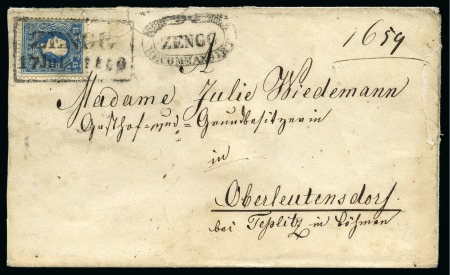 ZENGG
ZENGG
RECOMMANDIRT
1659
Madame Julie Wiedemann
Gasthof- und Grundbesitzerin
in
Oberleutensdorf
bei Teplitz in Böhmen